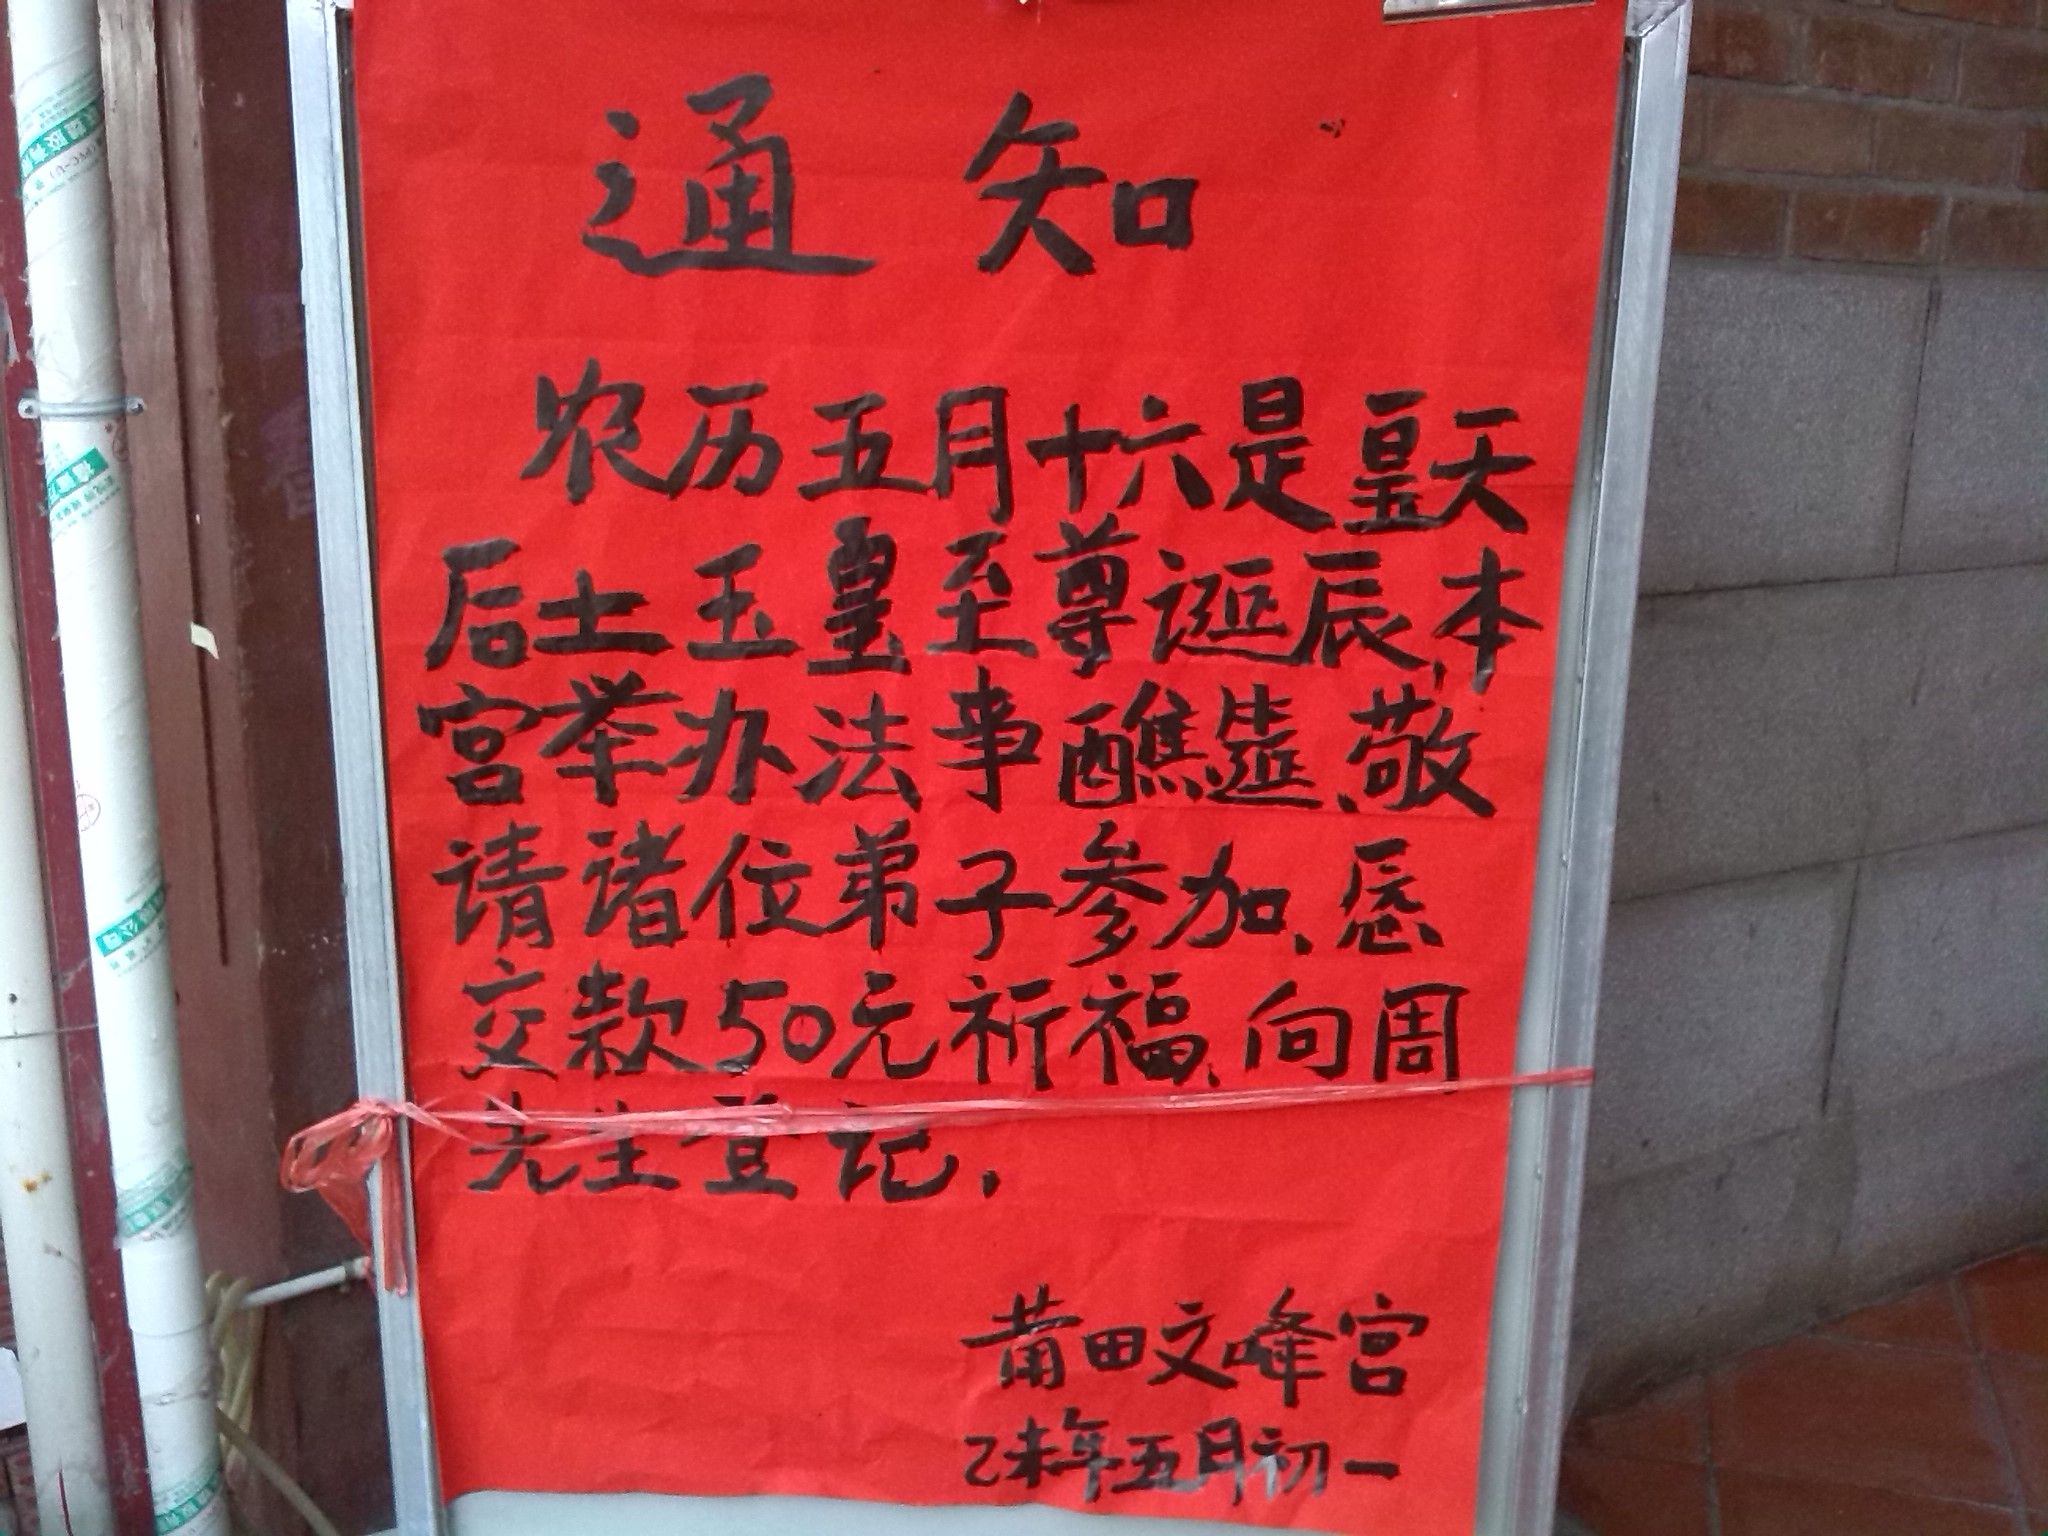 通知
农历五月十六是皇天
后土玉皇至尊诞辰,本
宫举办法事醮筵、敬
请诸位弟子参加、
交款50元祈福、向周
先生登记.
莆田文峰宫
乙未年五月初一